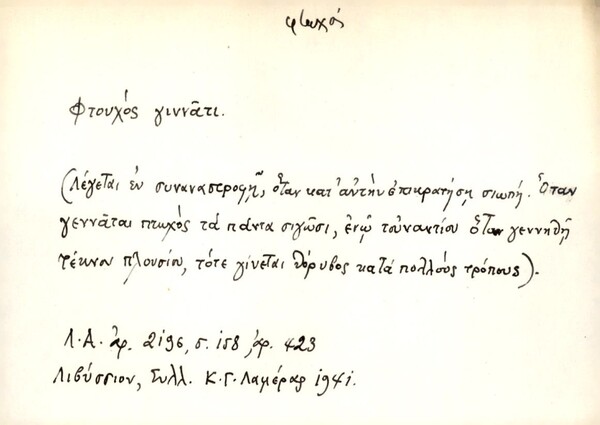 φτωχός
Φτουχός γιννᾶτι.
(Λέγεται ἐν συναναστροφῇ, ὅταν κατ' αὐτὴν ἐπικρατήσῃ σιωπή. Ὅταν
γεννᾶται πτωχὸς τὰ πάντα σιγῶσι, ἐνῷ τοὐναντίον ὅταν γεννηθῇ
τέκνον πλουσίου, τότε γίνεται θόρυβος κατὰ πολλοὺς τρόπους).
Λ.Α. ἀρ. 2196, σ. 158, ἀρ. 423
Λιβύσσιον, Συλλ. Κ.Γ. Λαμέρας 1941.